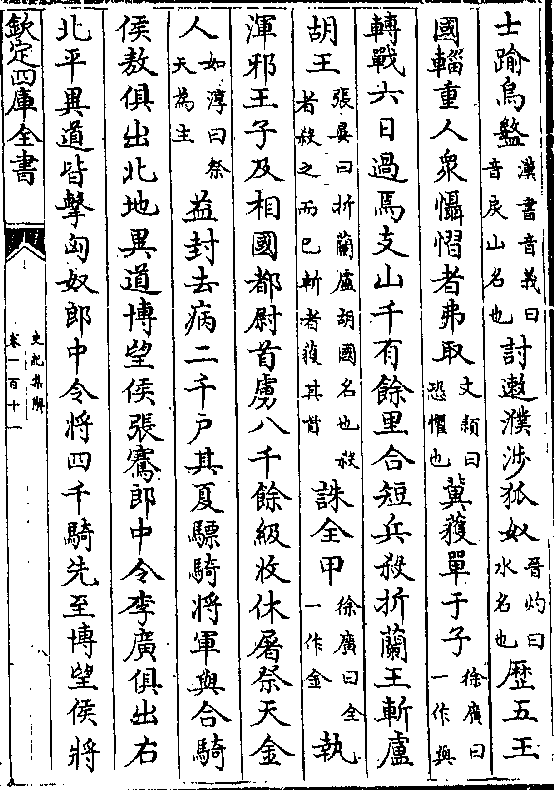 士踰烏盭漢書音義曰音戾山名也討遬濮涉狐奴晉灼曰水名也歷五王
國輜重人衆懾慴者弗取文穎曰恐懼也冀獲單于子徐廣曰一作與
轉戰六日過焉支山千有餘里合短兵殺折蘭王斬盧
胡王張晏曰折蘭盧胡國名也殺者殺之而已斬者獲其首誅全甲徐廣曰全一作金執
渾邪王子及相國都尉首虜八千餘級收休屠祭天金
人如淳曰祭天為主益封去病二千户其夏驃騎將軍與合騎
侯敖俱出北地異道博望侯張騫郎中令李廣俱出右
北平異道皆擊匈奴郎中令將四千騎先至博望侯將
欽定四庫全書
史記集解
卷一百十一